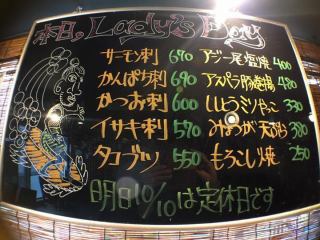 本日。Lady's Day
サーモン刺 670
かんぱち刺 690
かつお刺 600
イサキ刺 570
タコブツ 550
アジ一尾塩焼 400
アスパラ豚巻揚 480
しいとうミリやっこ 330
みょうが天ぷら 380
もろこし焼 250
明日10/10は定休日です